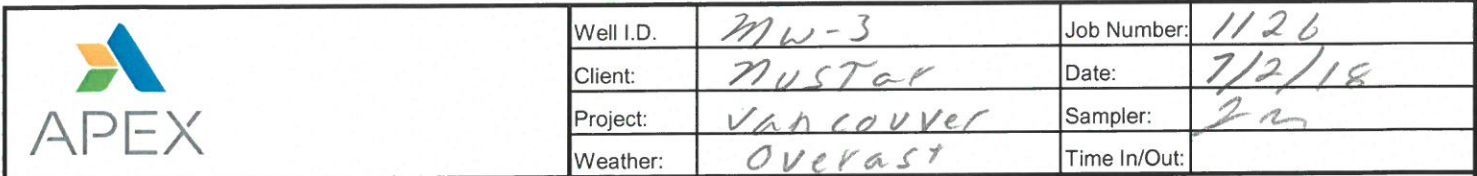 Well I.D. MW-3 Job Number: 1126
Client: NuSTar Date: 7/2/18
APEX
Project: Vancouver Sampler:
Weather: Overast Time In/Out: